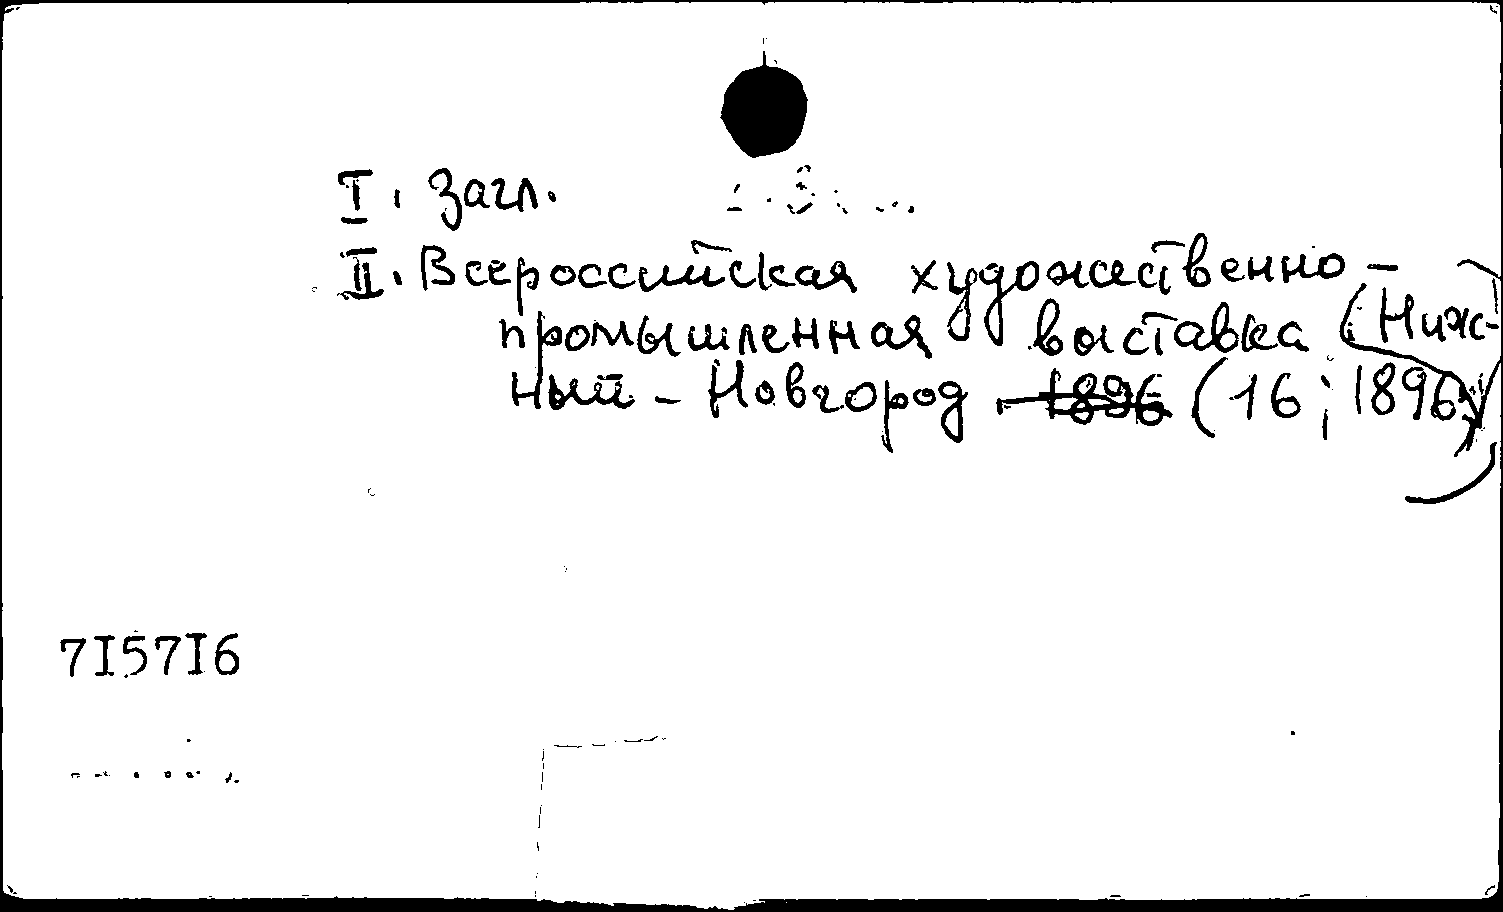 I. Загл.
II. Всероссийская художественно-
промышленная выставка (Ниж-
ный-Новгород 1896 (16; 1896)
7I57I6